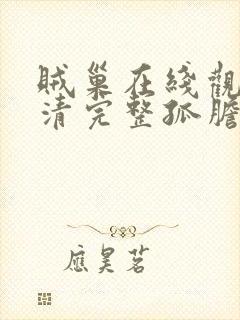 賊巢在綫觀
清完整孤膽
應昊茗